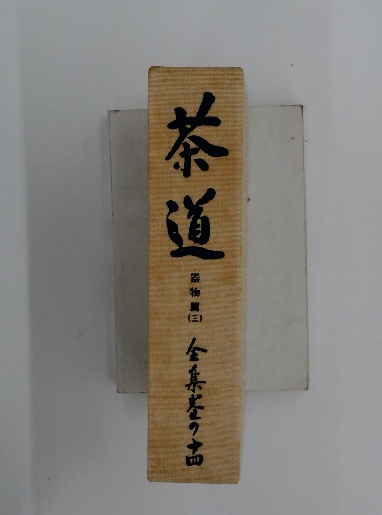 茶道
器物篇
(三)
全集巻の十四